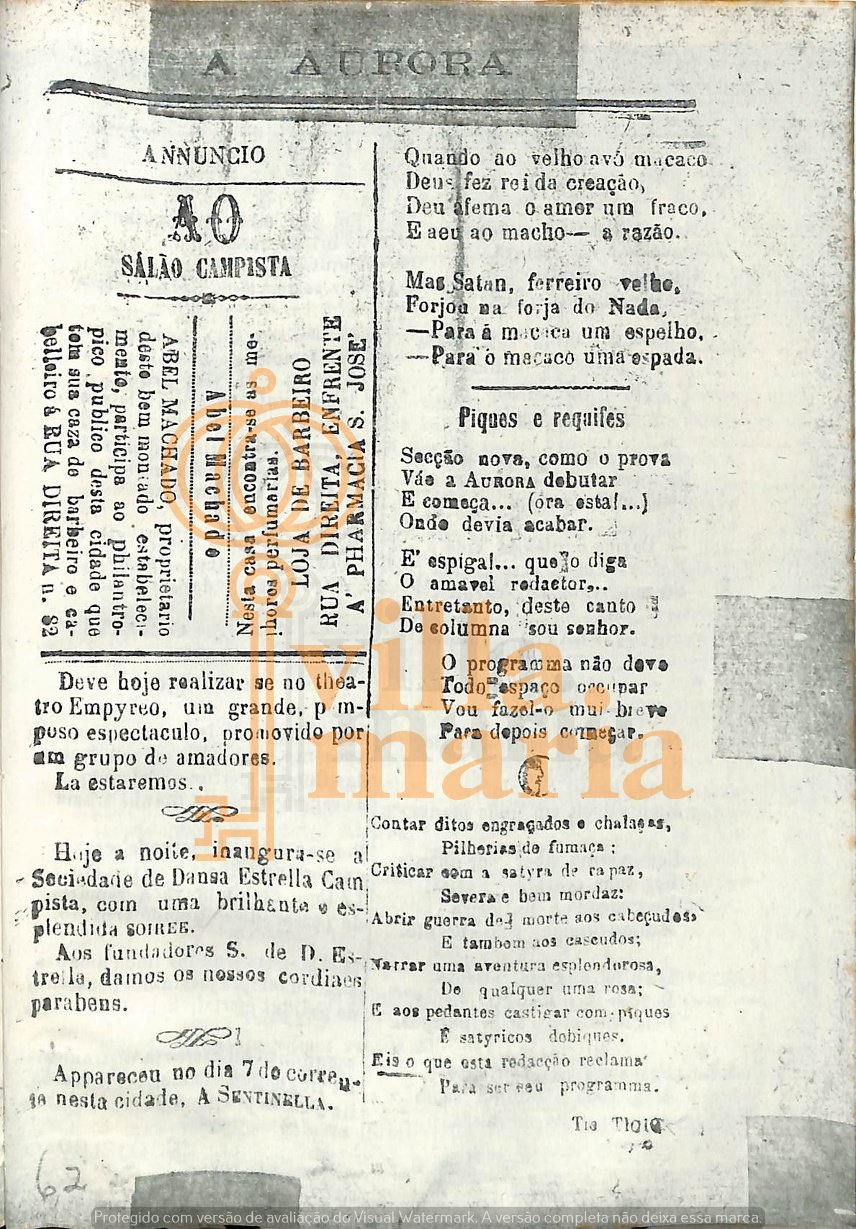 A AURORA
ANNUNCIO
AO
SALÃO CAMPISTA
A' PHARMACIA S. JOSE'
RUA DIREITA, ENFRENTE
LOJA DE BARBEIRO
Nesta casa encontra-se as me-
lhores perfumarias.
Abel Machado
ABEL MACHADO, proprietario
deste bem montado estabeleci-
mento, participa ao philantro-
pico publico desta cidade que
tem sua caza de barbeiro e ca-
belleiro á RUA DIREITA n. 82
Deve hoje realizar se no thea-
tro Empyreo, um grande, pom-
poso espectaculo, promovido por
um grupo de amadores.
La estaremos..
Hoje a noite, inaugura-se a
Sociedade de Dansa Estrella Cam
pista, com uma brilhante e es-
plendida SOIRÉE.
Aos fundadores S. de D. Es-
trella, damos os nossos cordiaes
parabens.
Appareceu no dia 7 do corren-
te nesta cidade, A SENTINELLA.
62
Quando ao velho avô macaco
Deus fez rei da creação,
Deu áfema o amor um fraco,
E deu ao macho— a razão.
Mas Satan, ferreiro velho,
Forjou na forja do Nada,
—Para á macaca um espelho,
—Para o macaco uma espada.
Piques e requifes
Secção nova, como o prova
Váe a AURORA debutar
E começa... (ora esta!...)
Onde devia acabar.
E' espiga!... que o diga
O amavel redactor,..
Entretanto, deste canto
De columna sou senhor.
O programma não deve
Todo espaço occupar
Vou fazel-o mui breve
Para depois começar.
Contar ditos engraçados e chalaças,
Pilherias de fumaça;
Criticar com a satyra de rapaz,
Severa e bem mordaz:
Abrir guerra de morte aos cabeçudos,
E tambem aos cascudos;
Narrar uma aventura esplendorosa,
De qualquer uma rosa;
E aos pedantes castigar com piques
E satyricos dobiques.
Eis o que esta redacção reclama
Para ser seu programma.
villa
maria
Protegido com versão de avaliação do Visual Watermark. A versão completa não deixa essa marca.